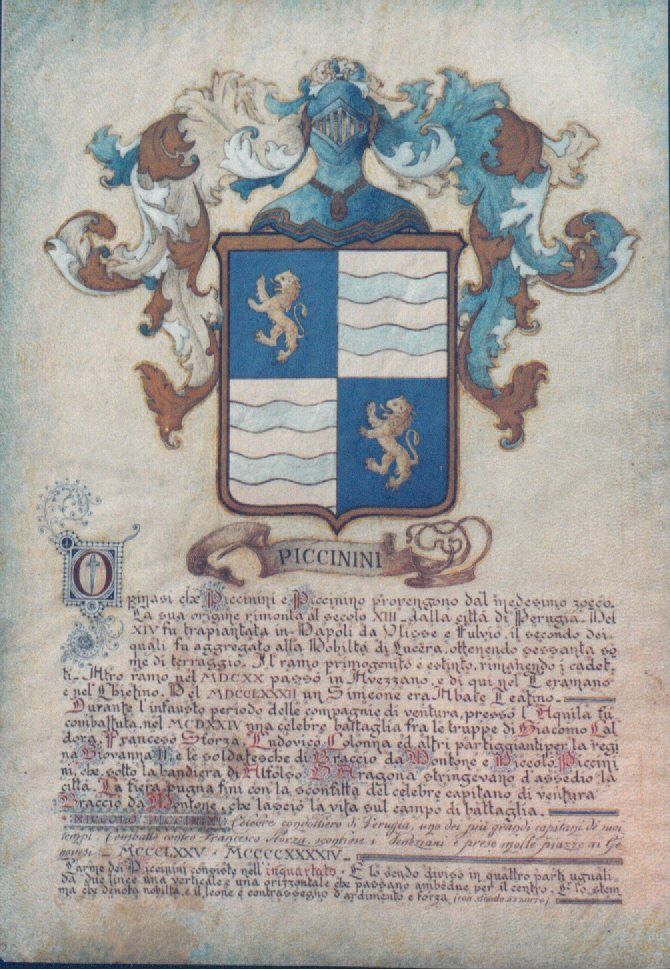 PICCININI
Opinasi che Piccinini e Piccinino provengono dal medesimo zocco.
La sua origine rimonta al secolo XIII dalla città di Perugia. Nel
XIV fu trapiantata in Napoli da Ulisse e Fulvio, il secondo dei
quali fu aggregato alla Nobiltà di Lucera, ottenendo sessanta so
me di terraggio. Il ramo primogenito è estinto, rimanendo i cadet
ti. Altro ramo nel MDCXX passò in Avezzano, e di qui nel Teramano
e nel Chietino. Nel MDCCLXXXII un Simeone era Abate Teatino.
Durante l'infausto periodo delle compagnie di ventura, presso l'Aquila fu
combattuta, nel MCDXXIV una celebre battaglia fra le truppe di Giacomo Cal
dora, Francesc Sforza, Ludovico Colonna ed altri partiggiani per la regi
na Giovanna II, e le soldatesche di Braccio da Montone e Niccolo Piccini
ni, che sotto la bandiera di Alfonso D'Aragona stringevano d'assedio la
città. La fiera pugna finì con la sconfitta del celebre capitano di ventura
Braccio da Montone, che lasciò la vita sul campo di battaglia.
NICCOLO PICCININO Celebre condottiero di Perugia, uno dei più grandi capitani de suoi
tempi. Combattè contro Francesco Sforza, i Veneziani e prese molte piazze ai Ge
novesi - MCCCLXXV · MCCCCXXXXIV
L'arme dei Piccinini consiste nell'inquartato. È lo scudo diviso in quattro parti uguali
da due linee una verticale e una orizzontale che passano ambedue per il centro. È lo stem
ma che denota nobiltà, e il leone è contrassegno d'ardimento e forza (con sfondo azzurro)